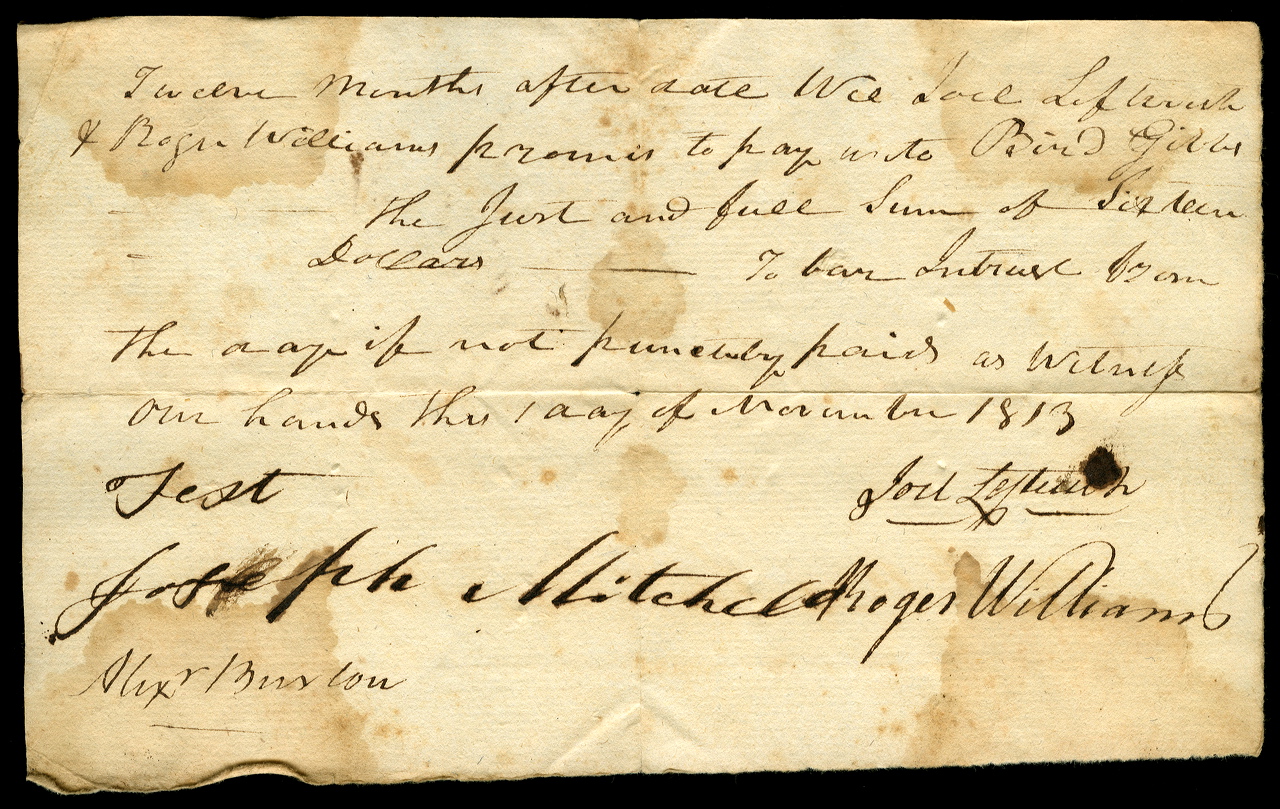 Twelve Months after date Wee Joel Leftwich
& Roger Williams promis to pay unto Bird Gibbs
the Just and full Sum of Sixteen
Dollars ——— To bair Intrust from
the day if not punctuly paid as Witness
our hands this 1 day of November 1813
Test Joel Leftwich
Joseph Mitchell Roger Williams
Alexr Burton